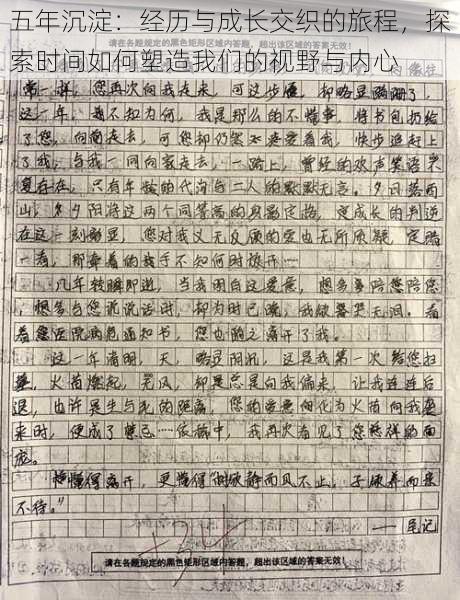 五年沉淀：经历与成长交织的旅程，探
索时间如何塑造我们的视野与内心
请在各题规定的黑色矩形区域内答题，超出该区域的答案无效！
常一样，您再次向我走来，可这步履，却略显蹒跚了，
这一年，我不知为何，我是那么的不懂事，将书包扔给
了您，向前走去，可您却仍旧疼爱着我，快步追赶上
了我，与我一同向家走去，一路上，曾经的欢声笑语早
已不在，只有年龄的代沟与二人的默默无言。夕日落西
山，夕阳将这两个同等高的身影定格，
在这一刻，您对我义无反顾的爱也无所质疑，定睛
一看，那牵着的我手不知何时放开……
几年转瞬即逝，当我明白这爱意，想多陪您陪您
，想多与您说说话时，却为时已晚，我欲哭无泪。看
着医院病危通知书，您也随之离开了我。
这一年清明，天，略显阴沉，这是我第一次给您扫
墓，火苗燃起，无风，却是总是向我偏来，让我连连后
退，也许是生与死的隔离，您的爱意但化为火苗向我袭
来时，便成了禁忌……依稀中，我再次看见了您慈祥的面
庞。
懂得离开，更懂得“树欲静而风不止，子欲养而亲
不待。”
——后记
请在各题规定的黑色矩形区域内答题，超出该区域的答案无效！